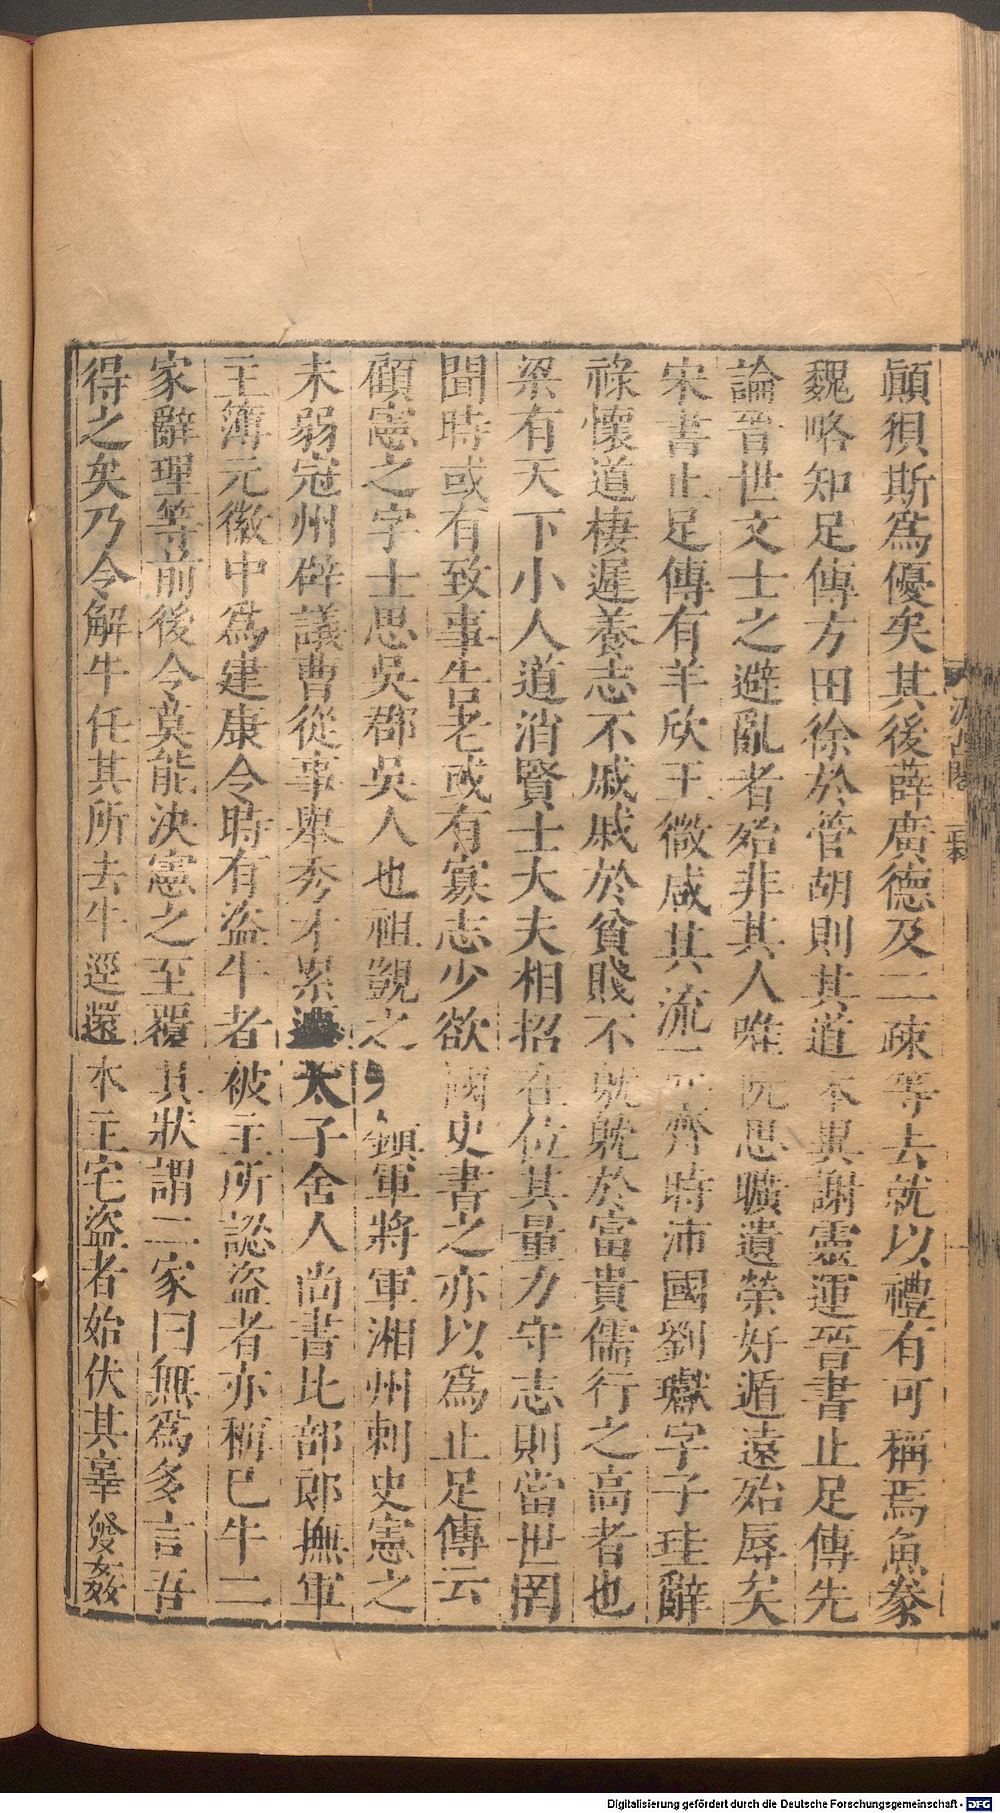 顚狽斯爲優矣其後薛廣德及二疎等去就以禮有可稱焉魚豢
魏略知足傳方田徐於管胡則其道本異謝靈運晉書止足傳先
論晉世文士之避亂者殆非其人唯阮思曠遺榮好遁遠殆辱矣
宋書止足傳有羊欣王微咸其流一齊時沛國劉瓛字子珪辭
祿懷道棲遲養志不戚戚於貧賤不躭躭於富貴儒行之高者也
梁有天下小人道消賢士大夫相招在位其量力守志則當世罔
聞時或有致事告老或有寡志少欲國史書之亦以爲止足傳云
顧憲之字士思吳郡吳人也祖覬之鎮軍將軍湘州刺史憲之
未弱冠州辟議曹從事舉秀才累遷太子舍人尚書比部郎撫軍
主簿元徽中爲建康令時有盜牛者被主所認盜者亦稱已牛二
家辭理等前後令莫能決憲之至覆其狀謂二家曰無爲多言吾
得之矣乃令解牛任其所去牛逕還本主宅盜者始伏其辜發姦
汲古閣
Digitalisierung gefördert durch die Deutsche Forschungsgemeinschaft - DFG